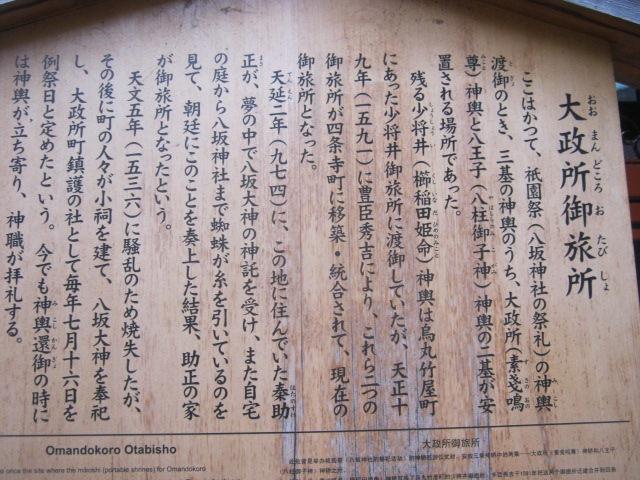 大政所御旅所
おお まん どころ お たび しょ
ここはかつて、祇園祭（八坂神社の祭礼）の神輿
渡御のとき、三基の神輿のうち、大政所（素戔鳴
尊）神輿と八王子（八柱御子神）神輿の二基が安
置される場所であった。
残る少将井（櫛稲田姫命）神輿は烏丸竹屋町
にあった少将井御旅所に渡御していたが、天正十
九年（一五九一）に豊臣秀吉により、これら二つの
御旅所が四条寺町に移築・統合されて、現在の
御旅所となった。
天延二年（九七四）に、この地に住んでいた秦助
正が、夢の中で八坂大神の神託を受け、また自宅
の庭から八坂神社まで蜘蛛が糸を引いているのを
見て、朝廷にこのことを奏上した結果、助正の家
が御旅所となったという。
天文五年（一五三六）に騒乱のため焼失したが、
その後に町の人々が小祠を建て、八坂大神を奉祀
し、大政所町鎮護の社として毎年七月十六日を
例祭日と定めたという。今でも神輿還御の時に
は神輿が立ち寄り、神職が拝礼する。
Omandokoro Otabisho
once the site where the mikoshi (portable shrines) for Omandokoro
大政所御旅所